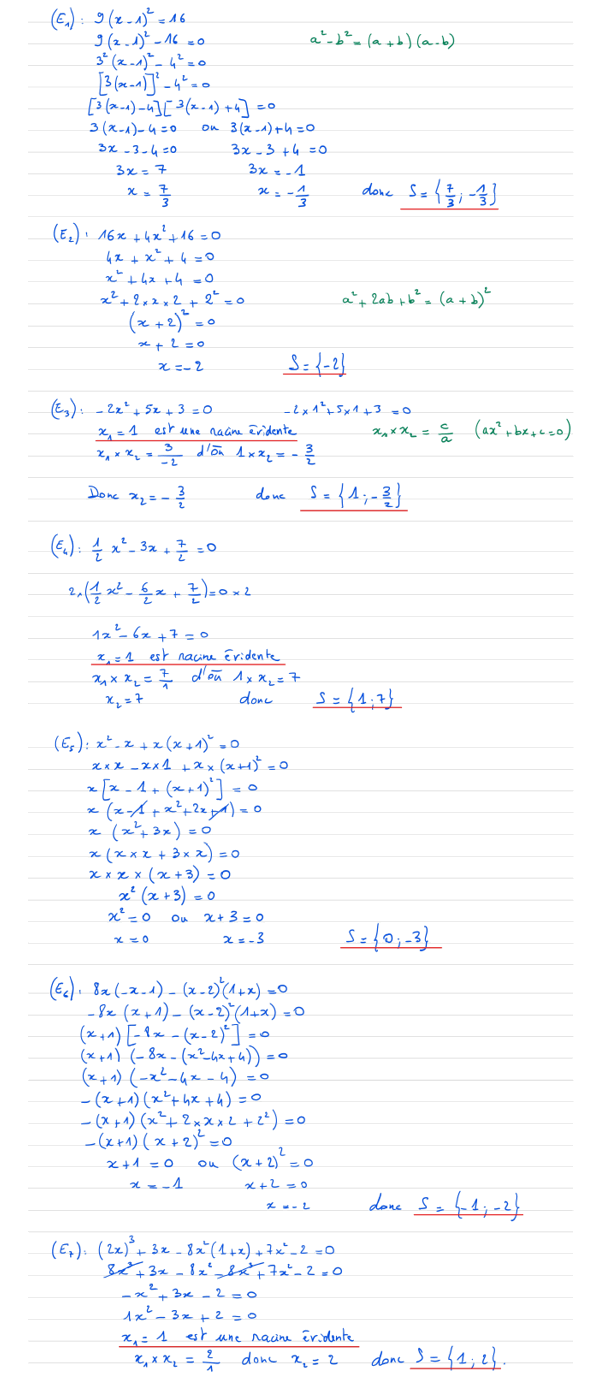 (E₁): 9(x-1)² = 16
9(x-1)² - 16 = 0 a² - b² = (a+b)(a-b)
3²(x-1)² - 4² = 0
[3(x-1)]² - 4² = 0
[3(x-1)-4][3(x-1)+4] = 0
3(x-1)-4 = 0 ou 3(x-1)+4 = 0
3x-3-4 = 0 3x-3+4 = 0
3x = 7 3x = -1
x = 7/3 x = -1/3 donc S = {7/3 ; -1/3}
(E₂): 16x + 4x² + 16 = 0
4x + x² + 4 = 0
x² + 4x + 4 = 0
x² + 2×x×2 + 2² = 0 a² + 2ab + b² = (a+b)²
(x+2)² = 0
x + 2 = 0
x = -2 S = {-2}
(E₃): -2x² + 5x + 3 = 0 -2×1² + 5×1 + 3 = 0
x₁ = 1 est une racine évidente x₁×x₂ = c/a (ax²+bx+c=0)
x₁×x₂ = 3/-2 d'où 1×x₂ = -3/2
Donc x₂ = -3/2 donc S = {1 ; -3/2}
(E₄): 1/2 x² - 3x + 7/2 = 0
2×(1/2 x² - 6/2 x + 7/2) = 0×2
1x² - 6x + 7 = 0
x₁ = 1 est racine évidente
x₁×x₂ = 7/1 d'où 1×x₂ = 7
x₂ = 7 donc S = {1 ; 7}
(E₅): x² - x + x(x+1)² = 0
x×x - x×1 + x×(x+1)² = 0
x[x - 1 + (x+1)²] = 0
x(x - 1 + x² + 2x + 1) = 0
x(x² + 3x) = 0
x(x×x + 3×x) = 0
x×x×(x+3) = 0
x²(x+3) = 0
x² = 0 ou x+3 = 0
x = 0 x = -3 S = {0 ; -3}
(E₆): 8x(-x-1) - (x-2)²(1+x) = 0
-8x(x+1) - (x-2)²(1+x) = 0
(x+1)[-8x - (x-2)²] = 0
(x+1)(-8x - (x²-4x+4)) = 0
(x+1)(-x² - 4x - 4) = 0
-(x+1)(x² + 4x + 4) = 0
-(x+1)(x² + 2×x×2 + 2²) = 0
-(x+1)(x+2)² = 0
x+1 = 0 ou (x+2)² = 0
x = -1 x+2 = 0
x = -2 donc S = {-1 ; -2}
(E₇): (2x)³ + 3x - 8x²(1+x) + 7x² - 2 = 0
8x³ + 3x - 8x² - 8x³ + 7x² - 2 = 0
-x² + 3x - 2 = 0
1x² - 3x + 2 = 0
x₁ = 1 est une racine évidente
x₁×x₂ = 2/1 donc x₂ = 2 donc S = {1 ; 2}.